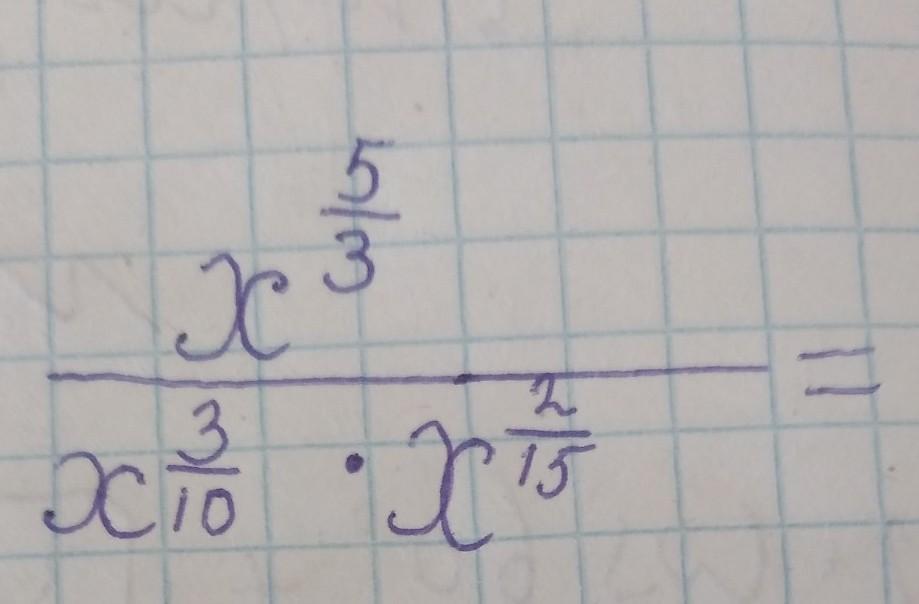 x^{\frac{5}{3}}
x^{\frac{3}{10}} · x^{\frac{2}{15}} =